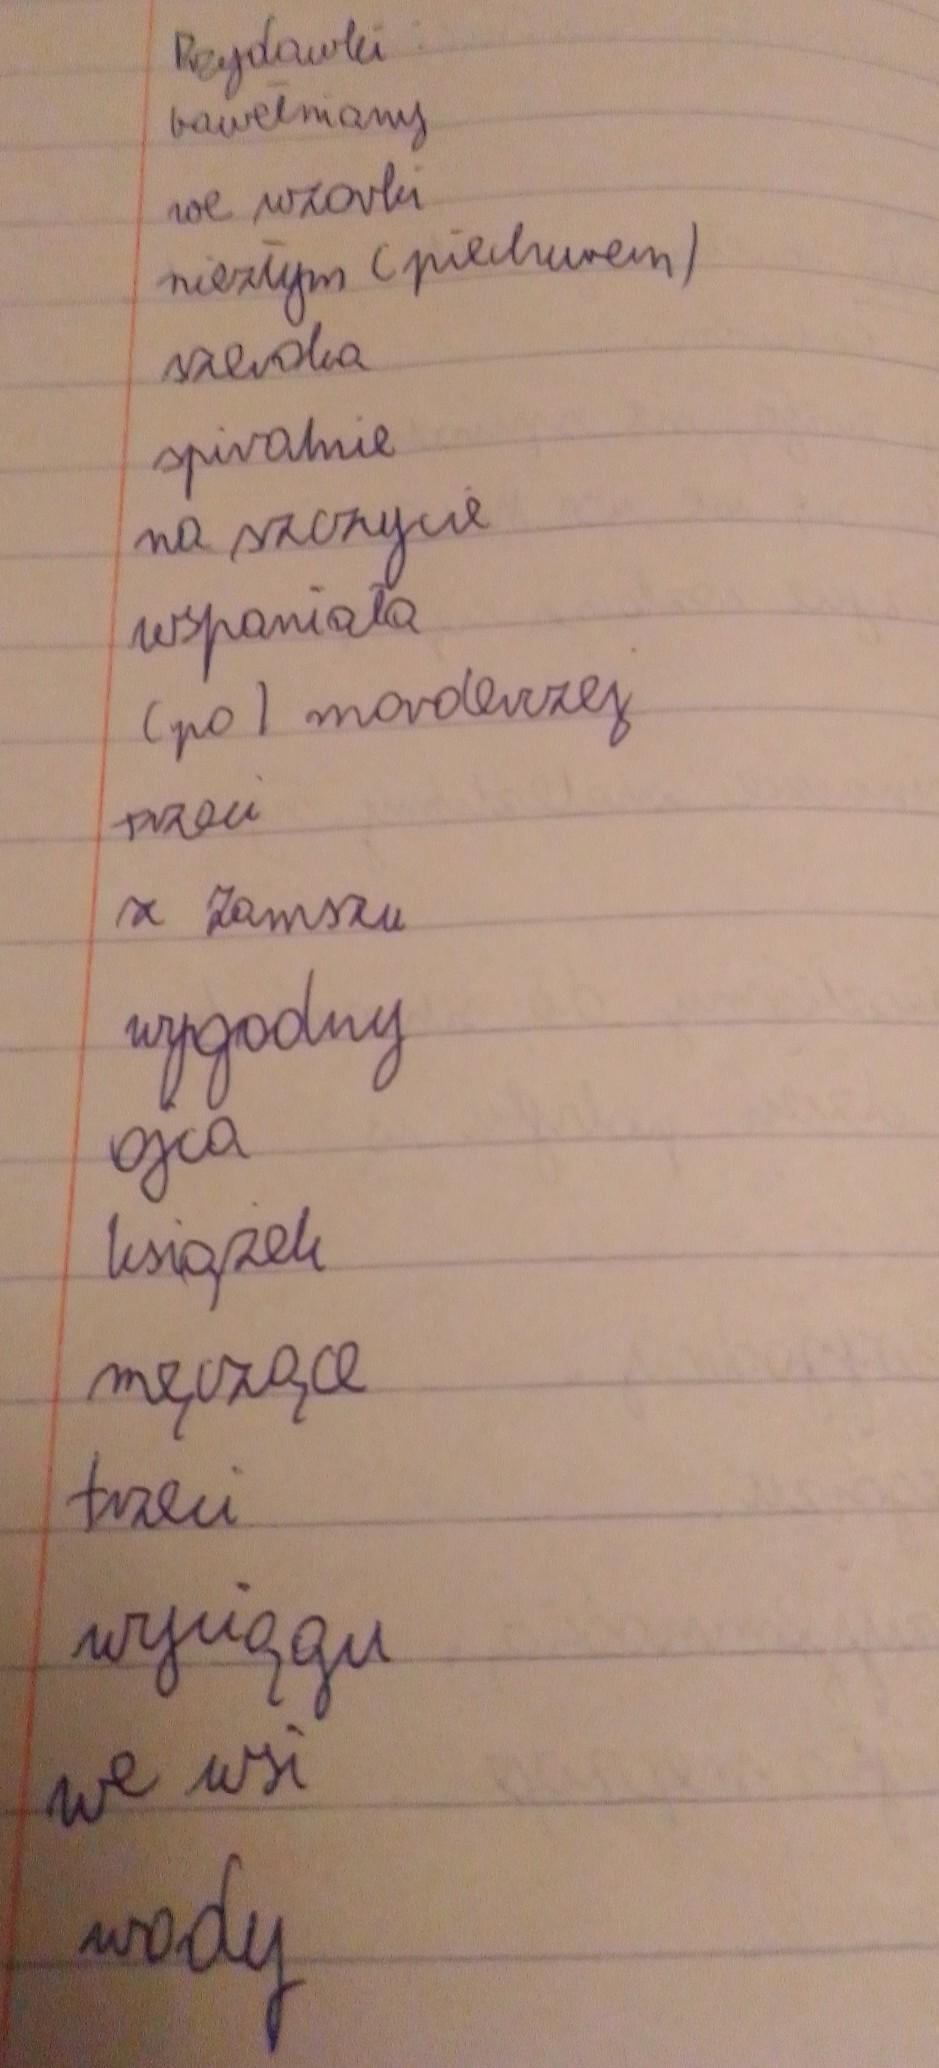 Przydawki:
bawełniany
we wzorki
niezłym (piechurem)
szeroka
spiralnie
na szczycie
wspaniała
(po) morderczej
trzeci
z zamszu
wygodny
ojca
książek
męczące
trzeci
wyciągu
we wsi
wody